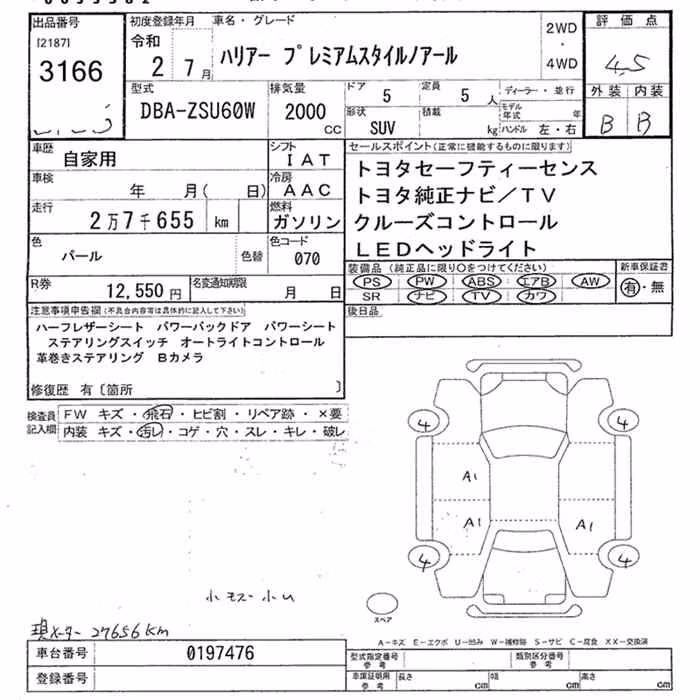 出品番号
[2187]
3166
初度登録年月
令和
2 7月
車名・グレード
ハリアー プレミアムスタイルノアール
2WD
・
4WD
評価点
4.5
外装 内装
B B
型式
DBA-ZSU60W
排気量
2000
CC
ドア
5
定員
5人
形状
SUV
積載
kg
ディーラー・並行
モデル年式 年
ハンドル 左・右
車歴
自家用
シフト
IAT
車検
年 月( 日)
冷房
AAC
走行
2万7千655 km
燃料
ガソリン
色
パール
色替
色コード
070
R券
12,550円
名変通知期限
月 日
セールスポイント(正常に機能するものに限ります)
トヨタセーフティーセンス
トヨタ純正ナビ/TV
クルーズコントロール
LEDヘッドライト
装備品 (純正品に限り○をつけてください)
PS PW ABS エアB AW
SR ナビ TV カワ
新車保証書
有・無
後日品
注意事項申告欄(不具合内容等は具体的に記入して下さい)
ハーフレザーシート パワーバックドア パワーシート
ステアリングスイッチ オートライトコントロール
革巻きステアリング Bカメラ
修復歴 有〔箇所 〕
検査員
記入欄
FW キズ・飛石・ヒビ割・リペア跡・×要
内装 キズ・汚レ・コゲ・穴・スレ・キレ・破レ
4 4
A1
A1 A1
4 4
スペア
小キズ小U
現メーター 27656Km
A-キズ E-エクボ U-凹み W-補修跡 S-サビ C-腐食 XX-交換済
車台番号
0197476
登録番号
型式指定番号
参考
類別区分番号
参考
車庫証明用
参考
長さ cm
幅 cm
高さ cm